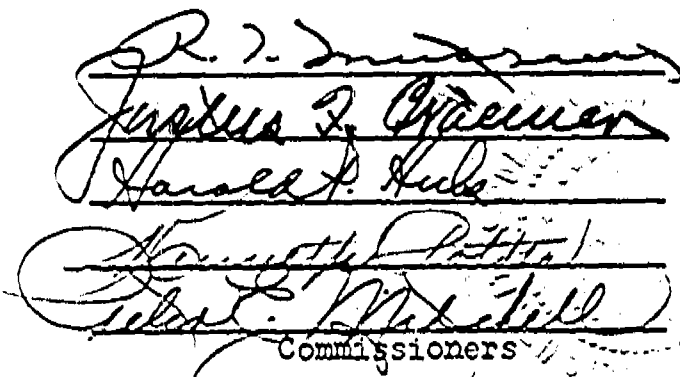 R. T.
Justus F. Craemer
Harold P. Huls
Kenneth Potter
Peter E. Mitchell
Commissioners